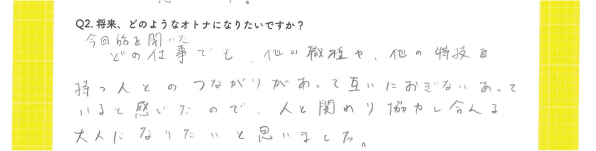 Q2. 将来、どのようなオトナになりたいですか？
今回話を聞いた
どの仕事でも、他の職種や、他の特技を
持つ人とのつながりがあって互いにおぎないあって
いると感じたので、人と関わり協力し合える
大人になりたいと思いました。